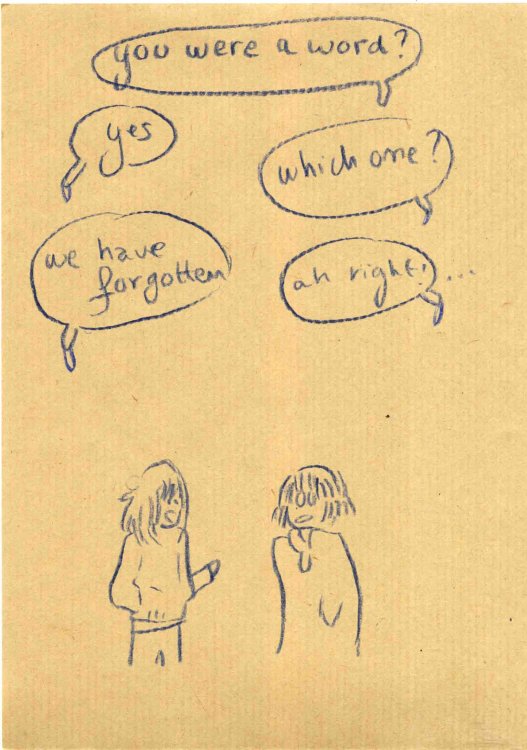 you were a word?
yes
which one?
we have
forgotten
ah right!...